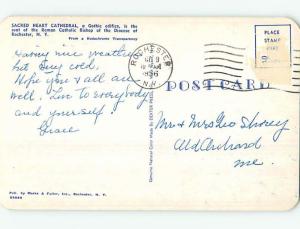 SACRED HEART CATHEDRAL, a Gothic edifice, is the
seat of the Roman Catholic Bishop of the Diocese of
Rochester, N. Y.
From a Kodachrome Transparency
Having nice weather
but very cold.
Hope you & all are
well. Love to everybody
and yourself.
Grace
Pub. by Manks & Fuller, Inc., Rochester, N. Y.
ROCHESTER
N.Y.
PLACE
STAMP
HERE
POST CARD
Mr & Mrs Geo Shorey
Old Orchard
Me.